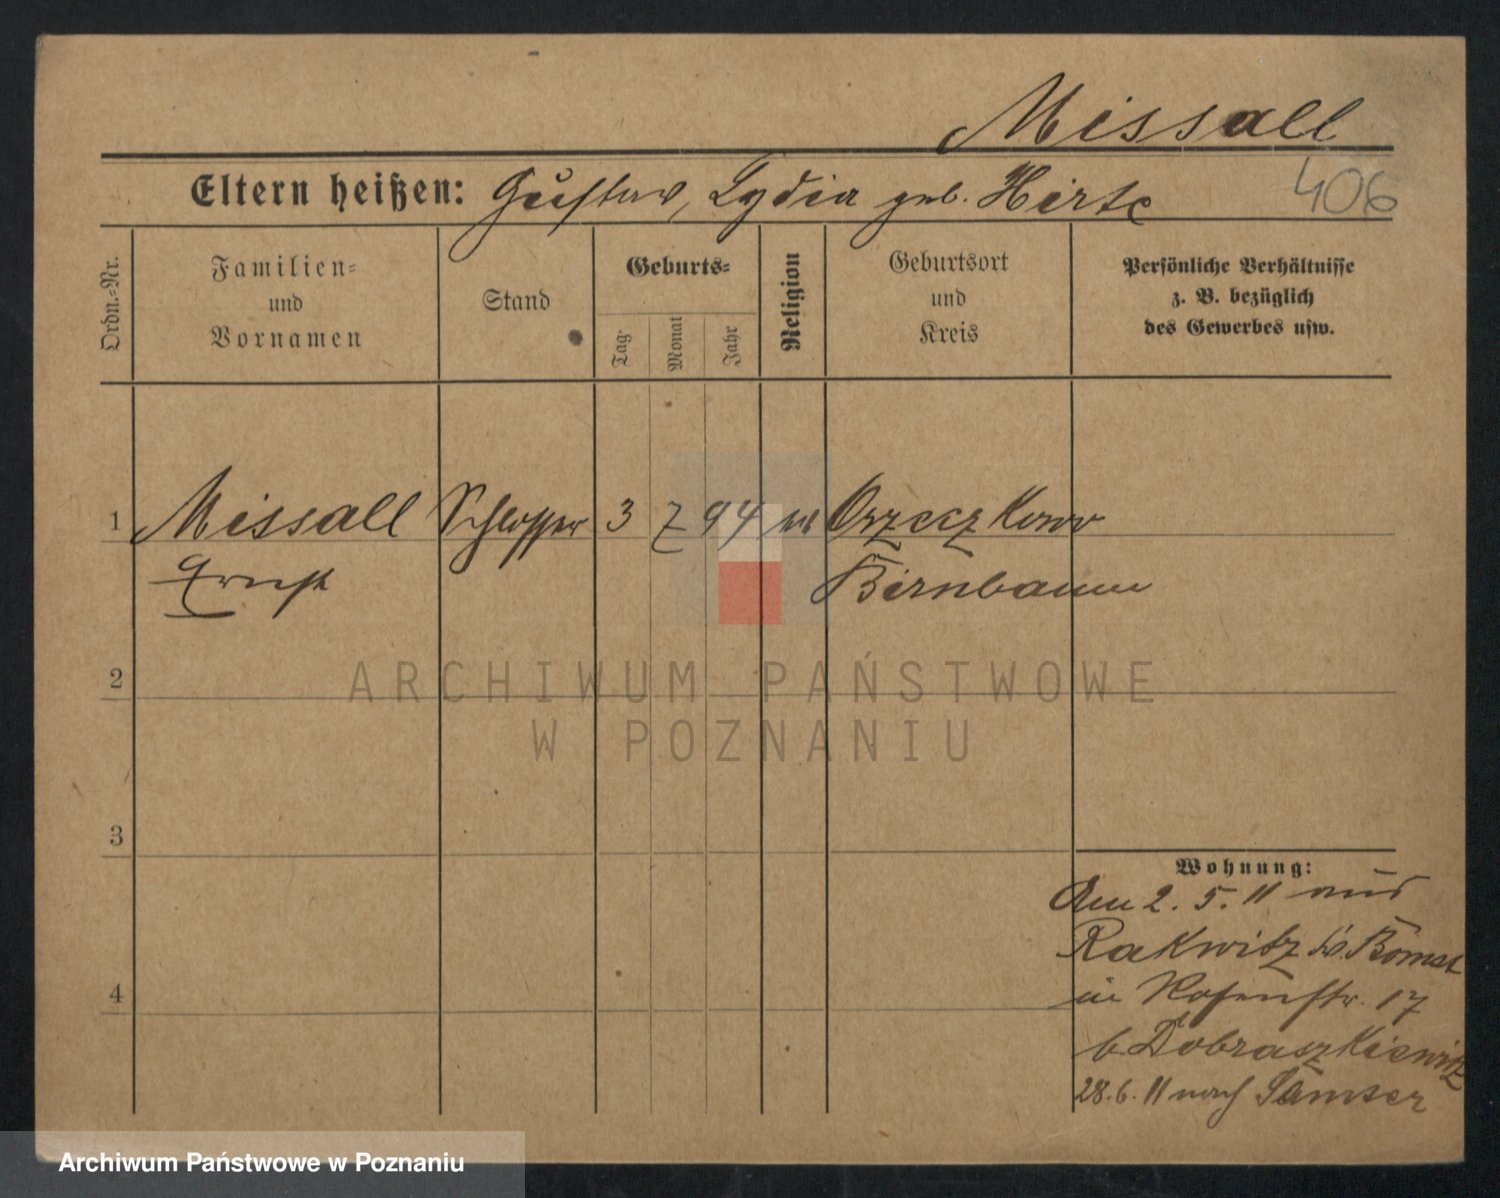 Missall
Eltern heißen: Gustav, Lydia geb. Hirte
406
Ordn.-Nr.
Familien-
und
Vornamen
Stand
Geburts-
Tag
Monat
Jahr
Religion
Geburtsort
und
Kreis
Persönliche Verhältnisse
z. B. bezüglich
des Gewerbes usw.
1 Missall Schlosser 3 7 94 Orzeczkowo
Ernst Birnbaum
2
ARCHIWUM PAŃSTWOWE
W POZNANIU
3
Wohnung:
Am 2. 5. 11 aus
Rakwitz Bomst
in Rosenstr. 17
4
b. Dobraszkiewitz
28. 6. 11 nach Samter
Archiwum Państwowe w Poznaniu